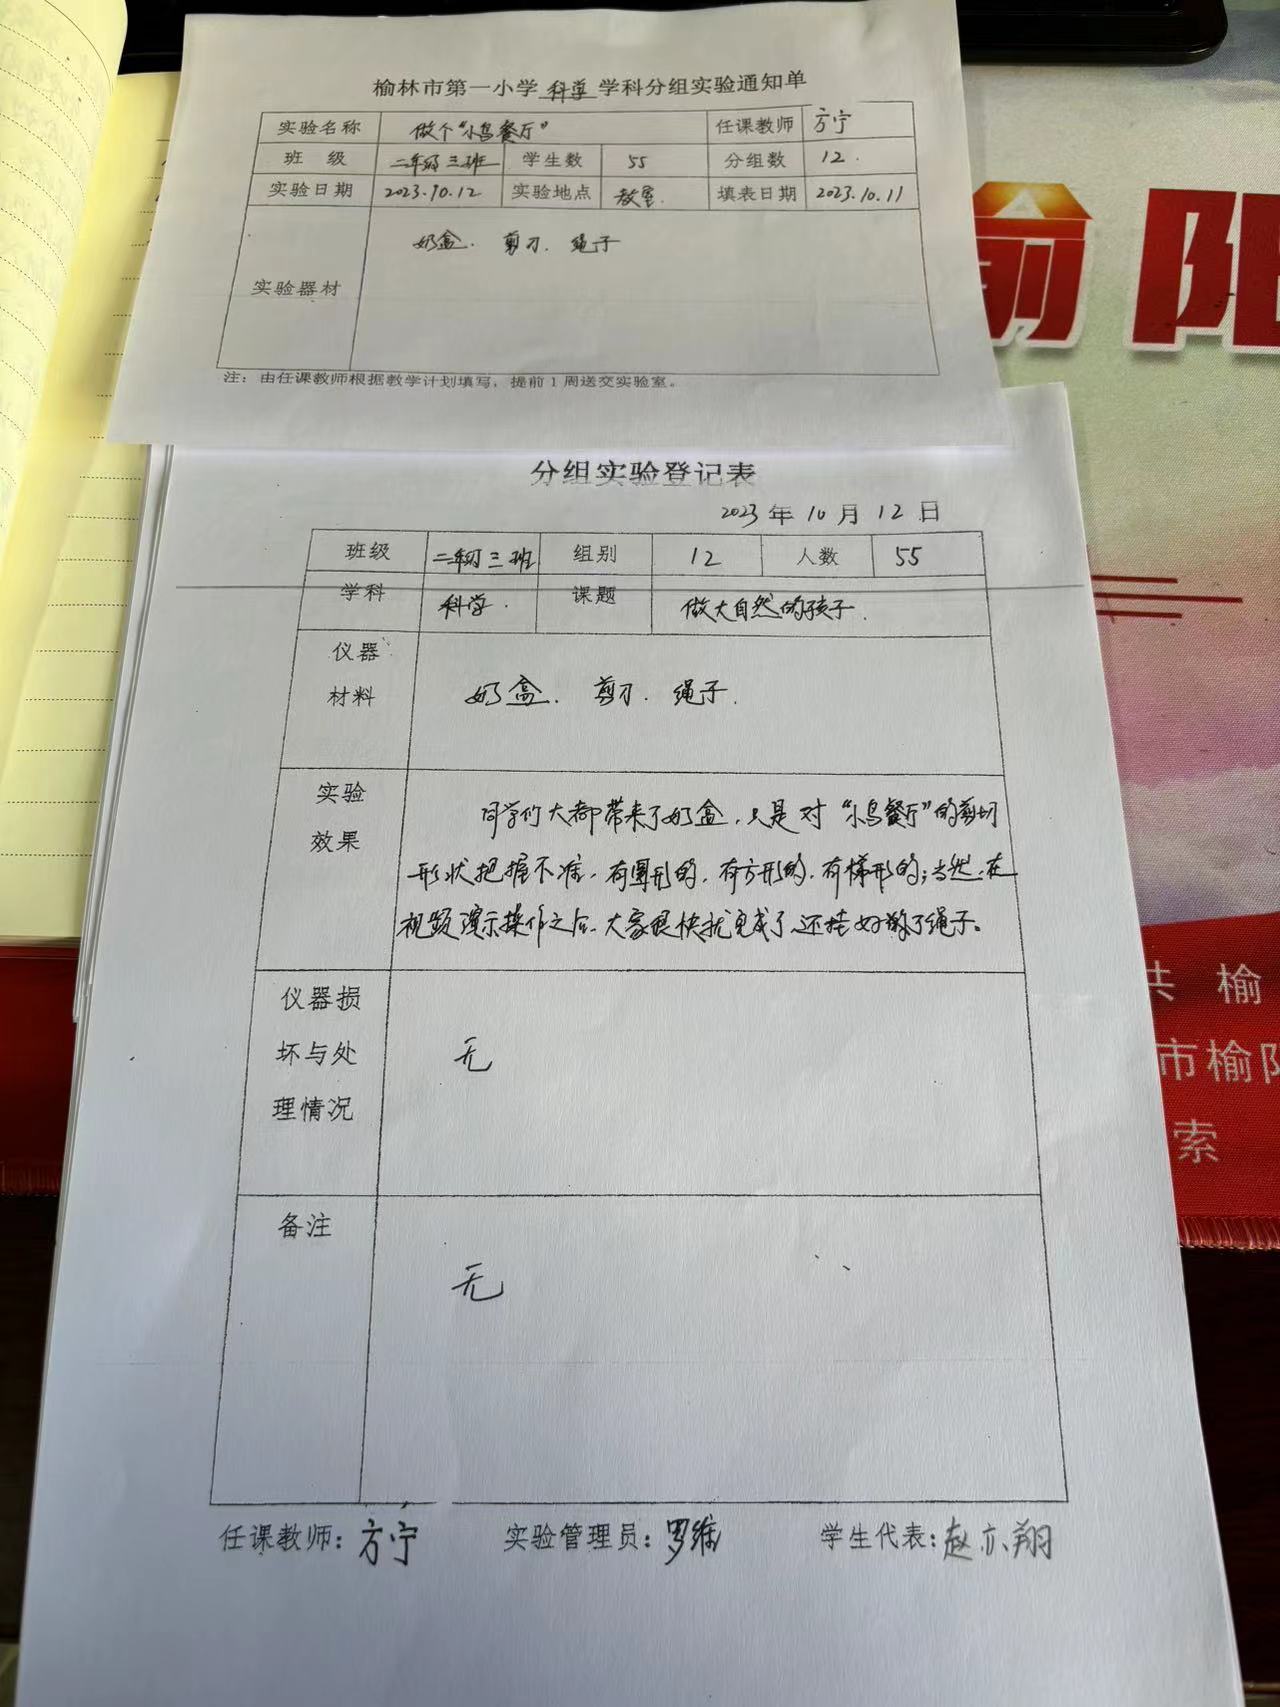 榆林市第一小学 科学 学科分组实验通知单
实验名称 做个“小鸟餐厅” 任课教师 方宁
班 级 二年级三班 学生数 55 分组数 12.
实验日期 2023.10.12 实验地点 教室. 填表日期 2023.10.11
奶盒. 剪刀. 绳子
实验器材
注：由任课教师根据教学计划填写，提前1周送交实验室。
分组实验登记表
2023 年 10 月 12 日
班级 二年级三班 组别 12 人数 55
学科 科学. 课题 做大自然的孩子.
仪器
材料 奶盒. 剪刀. 绳子.
实验
效果
同学们大都带来了奶盒，只是对“小鸟餐厅”的剪切
形状把握不准，有圆形的，有方形的，有梯形的；当然，在
视频演示操作之后，大家很快就完成了，还挂好了绳子。
仪器损
坏与处
理情况
无
备注
无
任课教师：方宁 实验管理员：罗维 学生代表：赵亦翔
榆 阳
共 榆
市榆阳
索